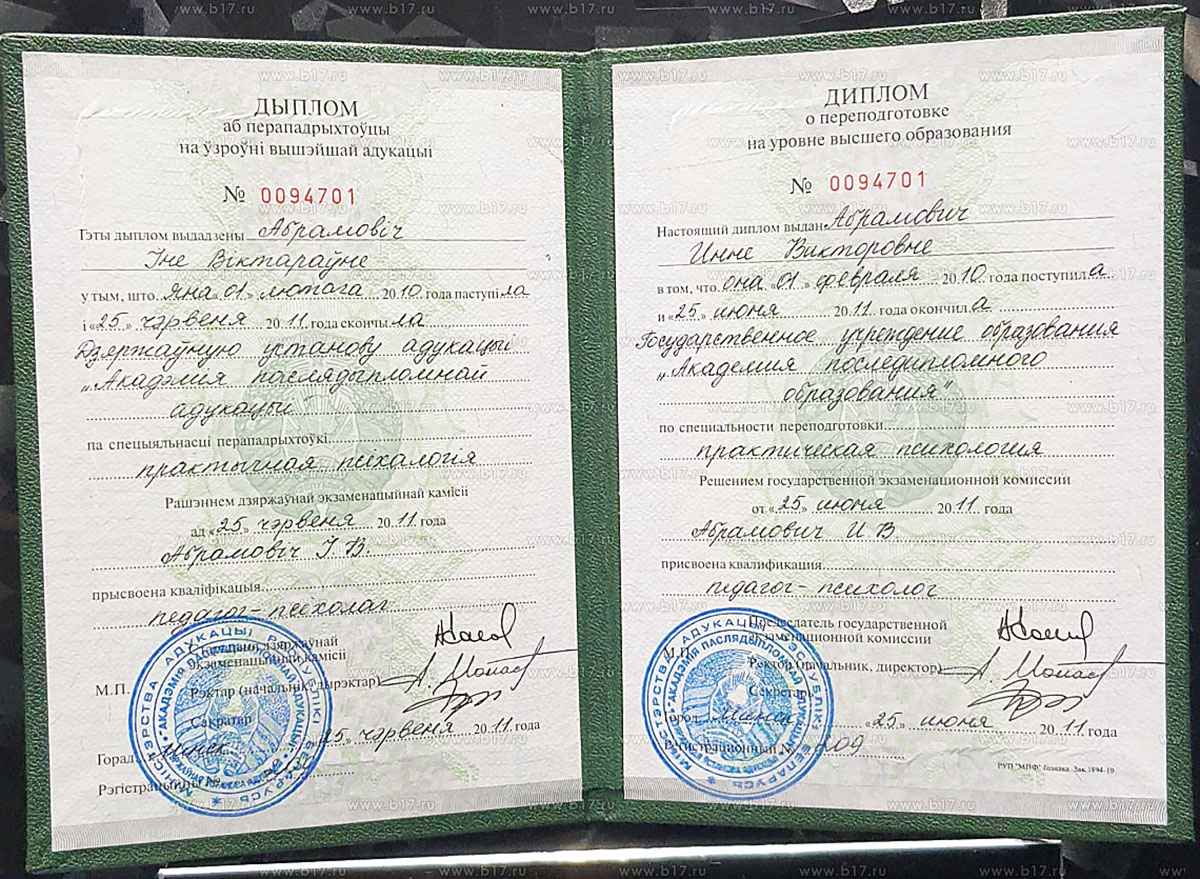 ДЫПЛОМ
аб перападрыхтоўцы
на ўзроўні вышэйшай адукацыі
№ 0094701
Гэты дыплом выдадзены Абрамовіч
Іне Віктараўне
у тым, што яна «01» лютага 2010 года паступіла
і «25» чэрвеня 2011 года скончыла
Дзяржаўную установу адукацыі
„Акадэмия паслядыпломнай
адукацыи
па спецыяльнасці перападрыхтоўкі
практычная псіхалогія
Рашэннем дзяржаўнай экзаменацыйнай камісіі
ад «25» чэрвеня 2011 года
Абрамовіч І. В.
прысвоена кваліфікацыя
педагог-псіхолаг
дзяржаўнай
экзаменацыйнай камісіі
М.П.
Рэктар (начальнік, дырэктар)
Сакратар
Горад Мінск «25» чэрвеня 2011 года
Рэгістрацыйны №
ДИПЛОМ
о переподготовке
на уровне высшего образования
№ 0094701
Настоящий диплом выдан Абрамович
Инне Викторовне
в том, что она «01» февраля 2010 года поступила
и «25» июня 2011 года окончила
Государственное учреждение образования
„Академия последипломного
образования"
по специальности переподготовки
практическая психология
Решением государственной экзаменационной комиссии
от «25» июня 2011 года
Абрамович И В
присвоена квалификация
педагог-психолог
Председатель государственной
экзаменационной комиссии
М.П.
Ректор (начальник, директор)
Секретарь
Город Минск «25» июня 2011 года
Регистрационный № 209
РУП "МПФ" Гознака. Зак.1894-10
МІНІСТЭРСТВА АДУКАЦЫІ РЭСПУБЛІКІ БЕЛАРУСЬ
"АКАДЭМІЯ ПАСЛЯДЫПЛОМНАЙ АДУКАЦЫІ"
www.b17.ru